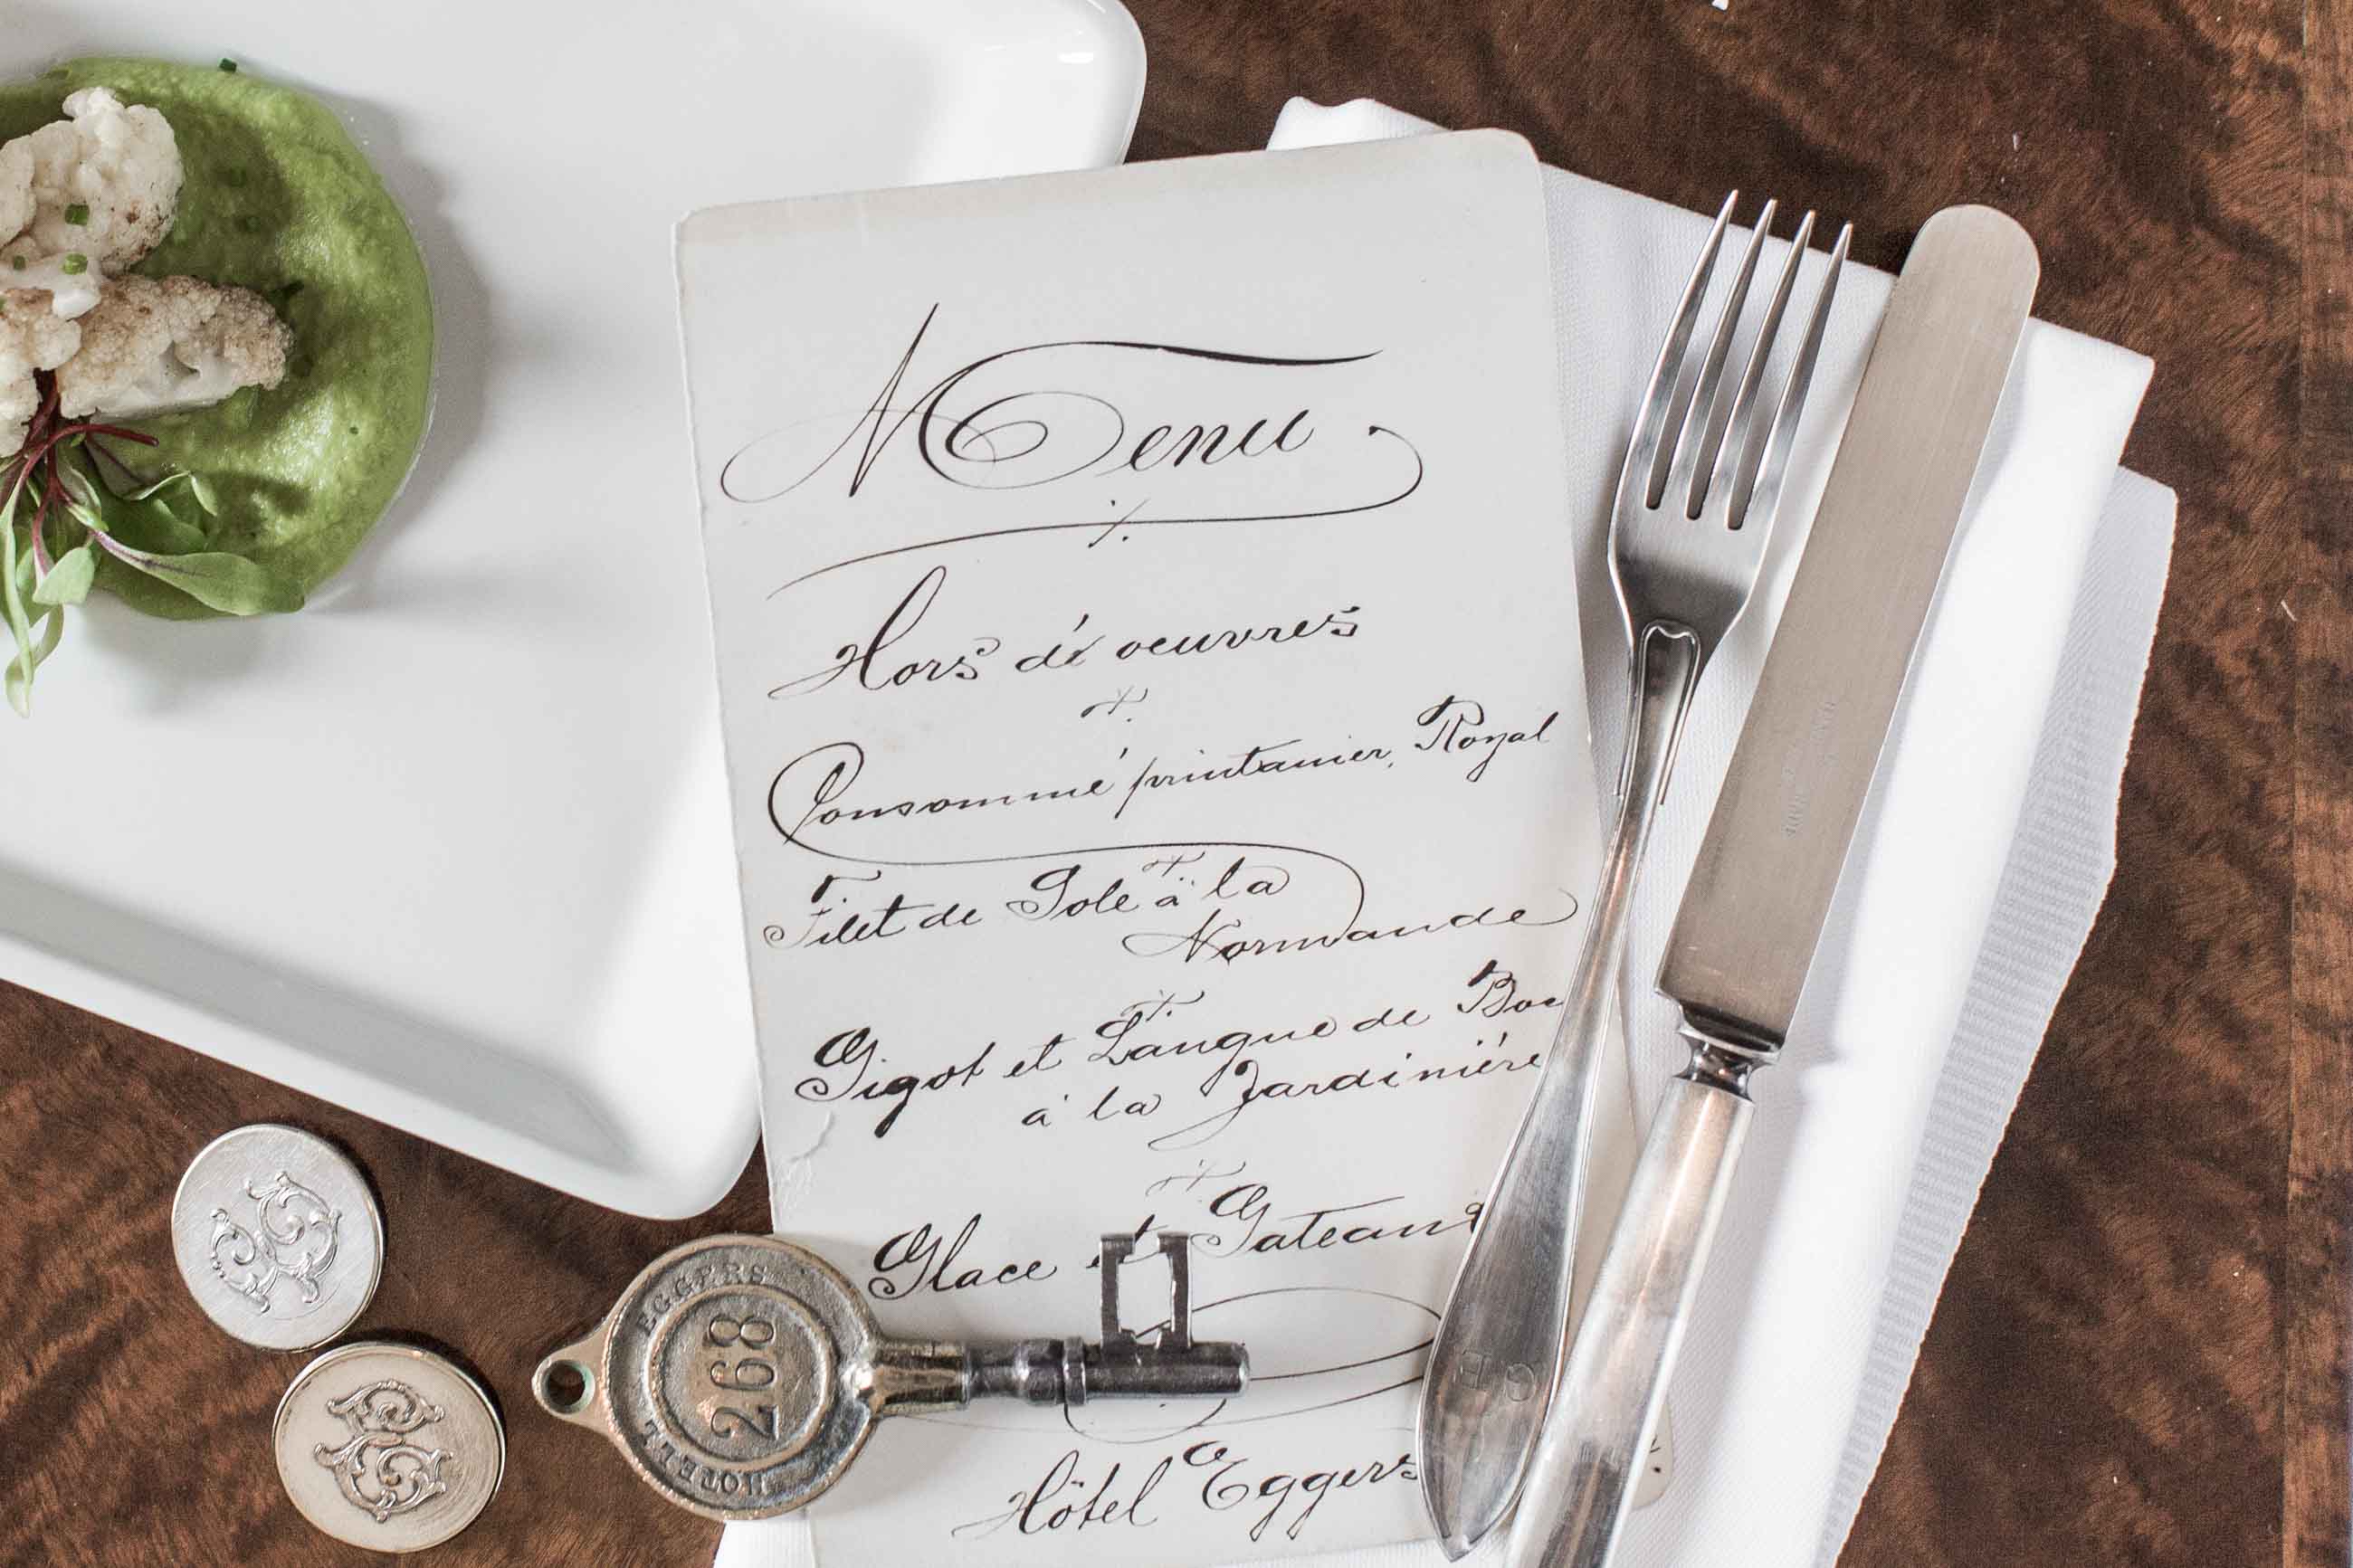 Menu
Hors d'oeuvres
Consommé printanier, Royal
Filet de Sole à la
Normande
Gigot et Langue de Boe
à la Jardinière
Glace et Gateaux
Hôtel Eggers
EGGERS
268
HOTELL